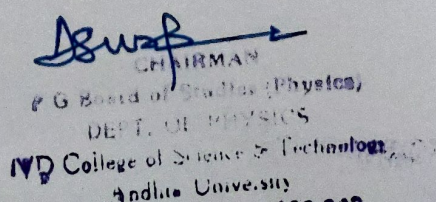 CHAIRMAN
P G Board of Studies (Physics)
DEPT. OF PHYSICS
College of Science & Technology
Andhra University